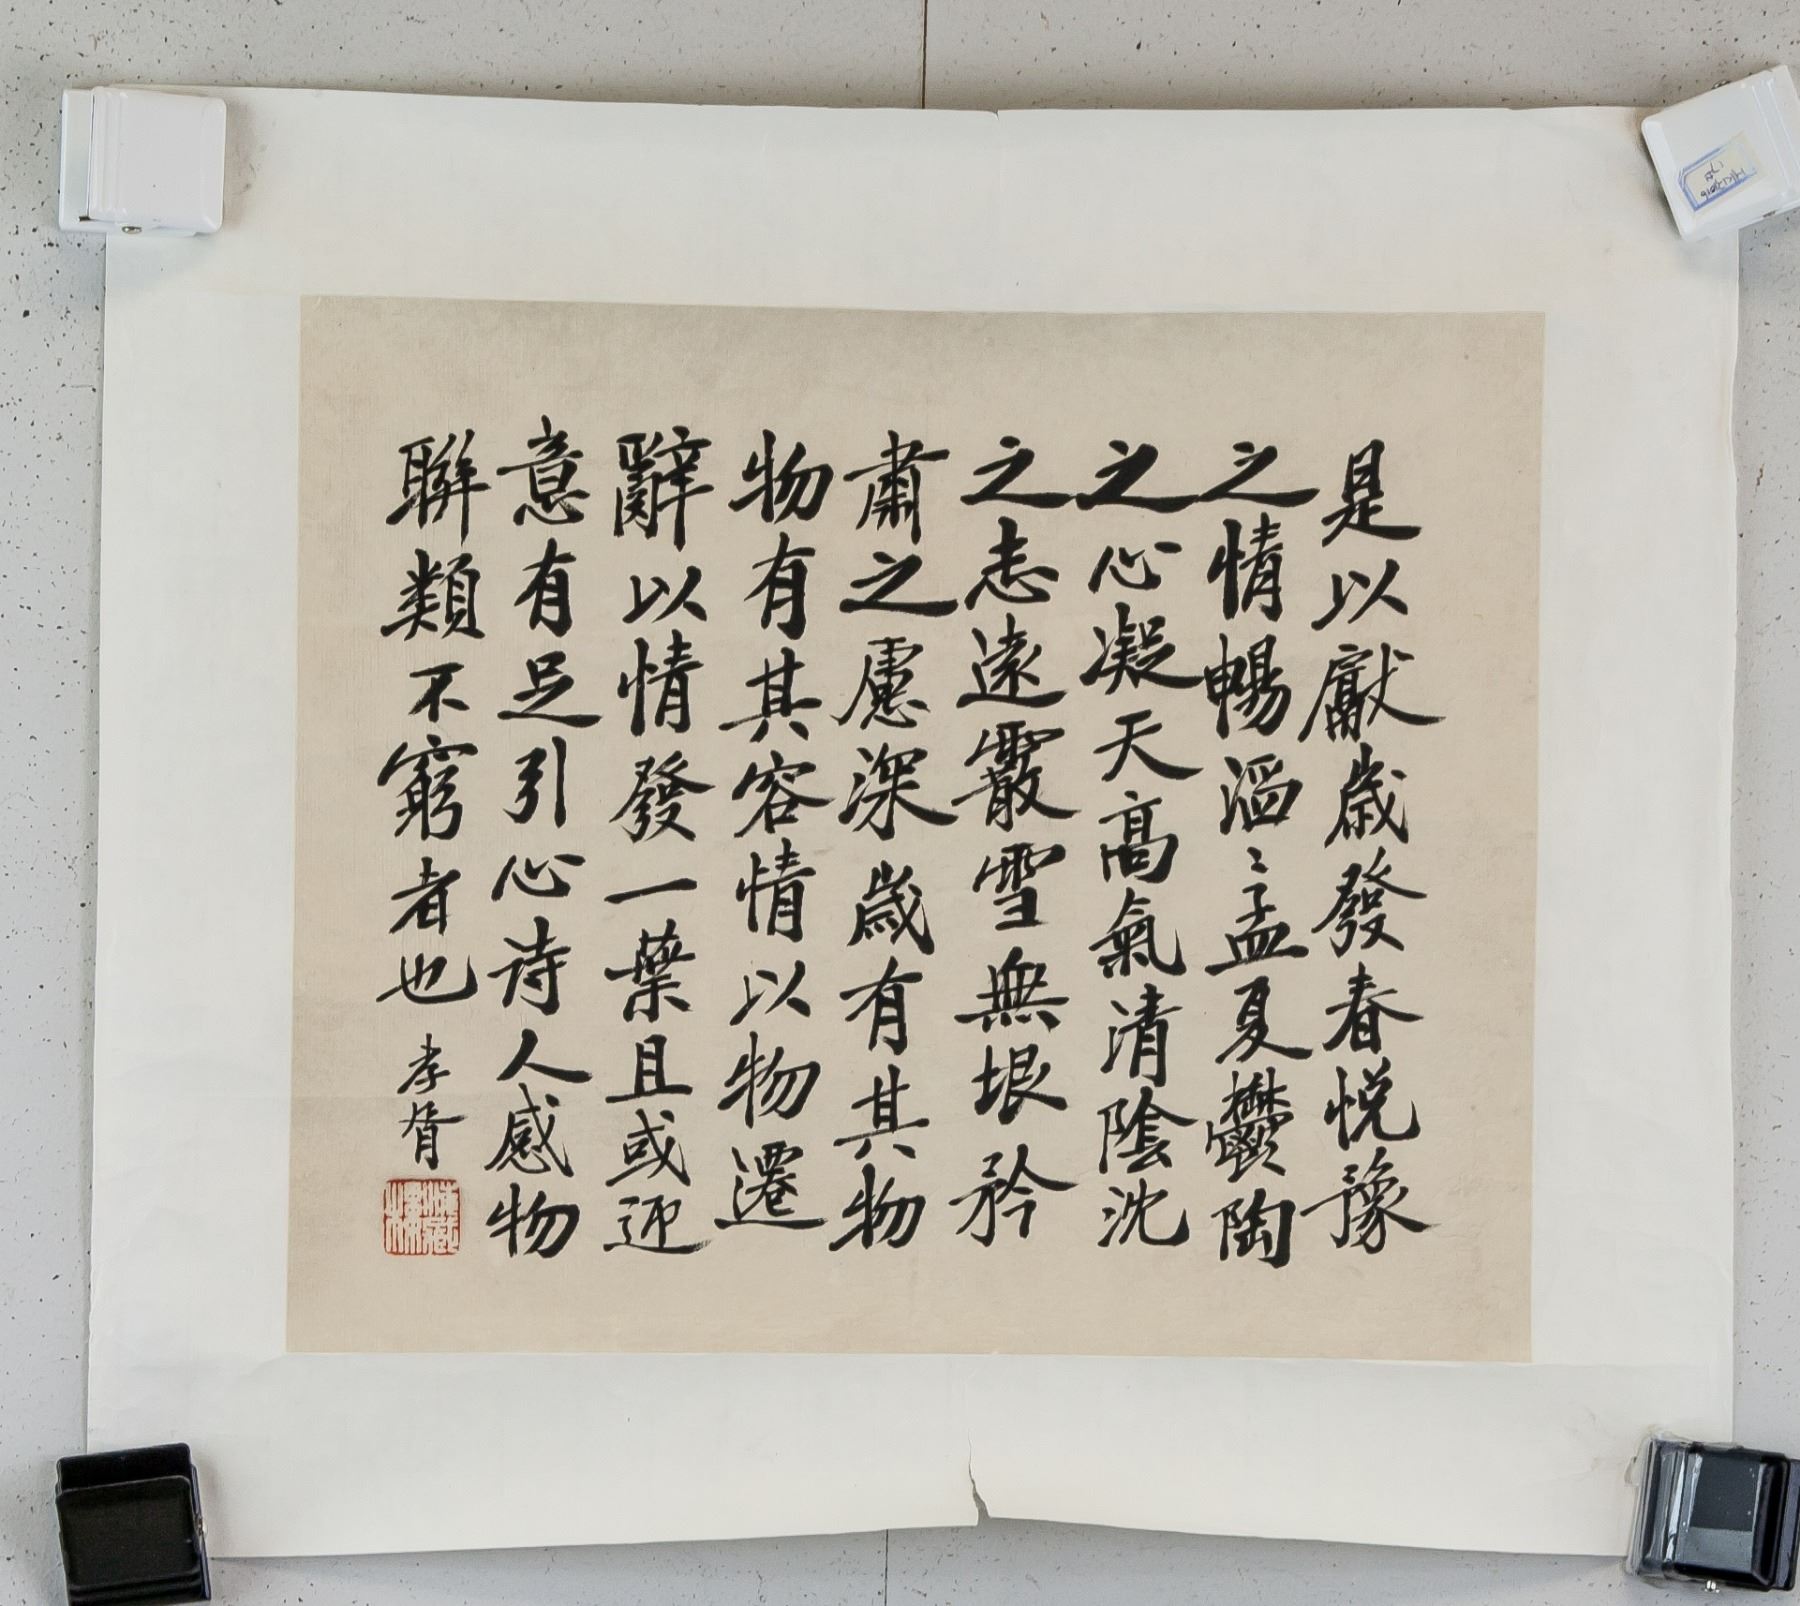 是以獻歲發春悅豫
之情暢滔〻孟夏鬱陶
之心凝天高氣清陰沈
之志遠霰雪無垠矜
肅之慮深歲有其物
物有其容情以物遷
辭以情發一葉且或迎
意有足引心诗人感物
聯類不窮者也 孝胥